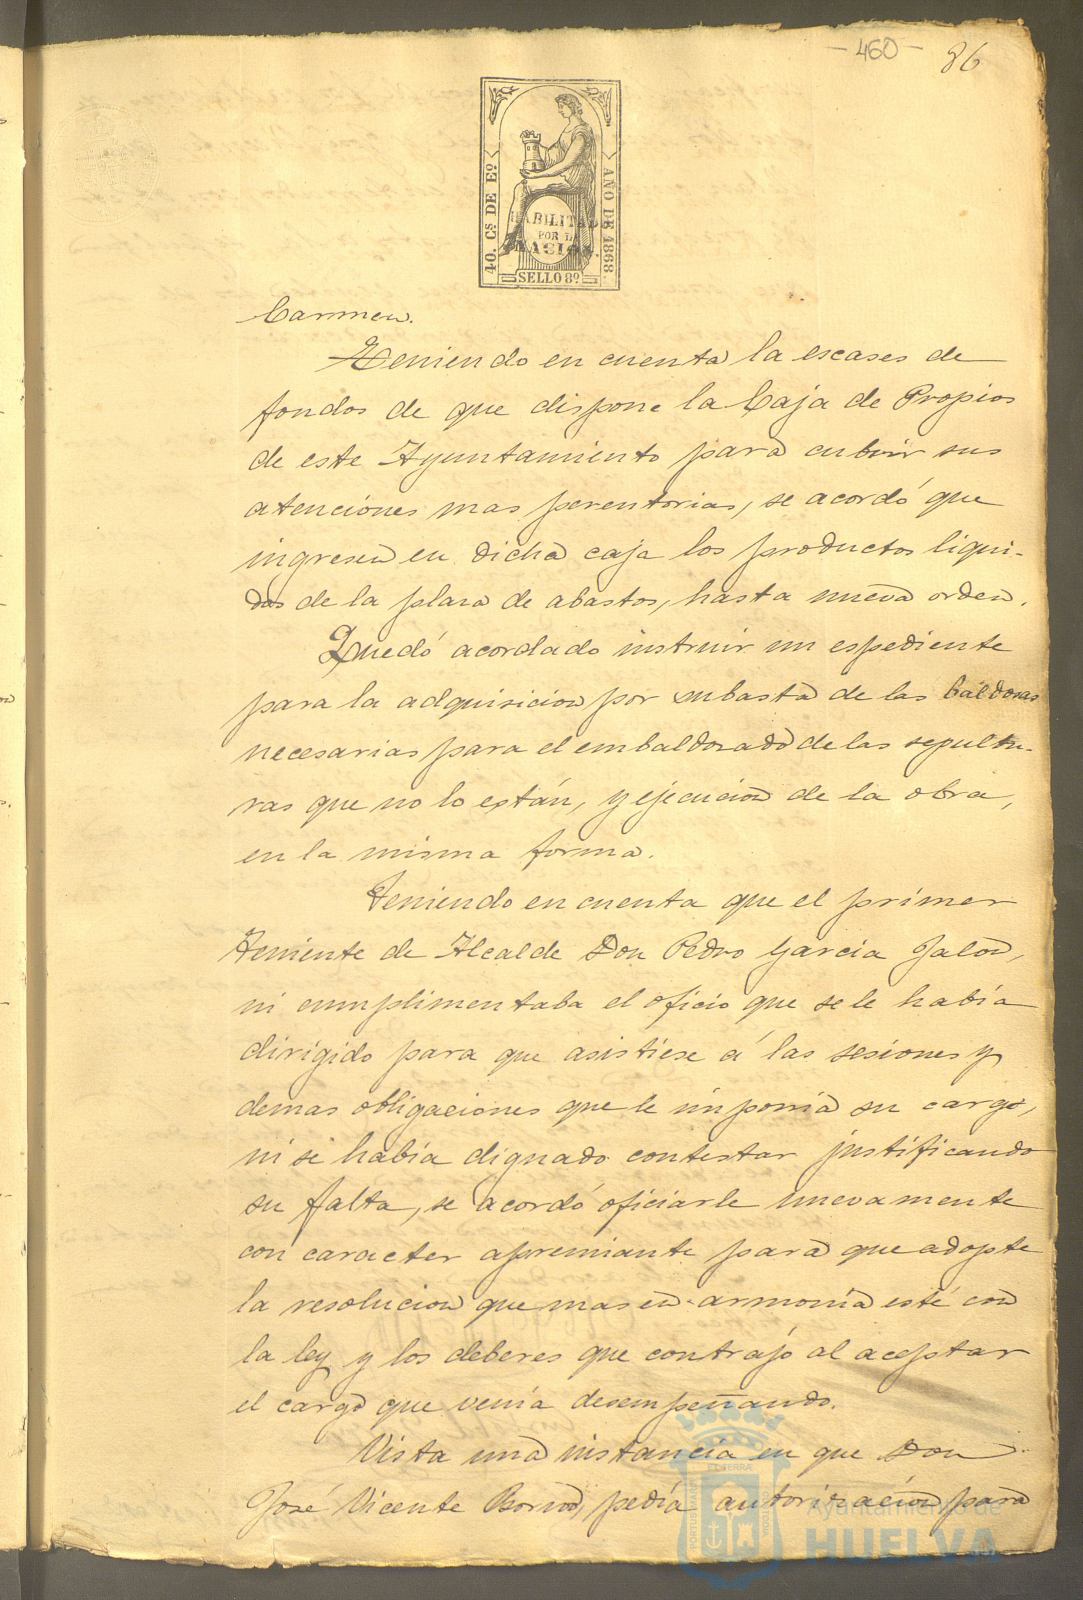 - 460 -
86
40. Cs DE Eo.
AÑO DE 1868.
HABILITADO
POR LA
NACION.
SELLO 8º
Carmen.
Teniendo en cuenta la escases de
fondos de que dispone la Caja de Propios
de este Ayuntamiento para cubrir sus
atenciones mas perentorias, se acordó que
ingresen en dicha caja los productos liqui-
dos de la plaza de abastos, hasta nueva orden.
Quedó acordado instruir un espediente
para la adquisicion por subasta de las baldosas
necesarias para el embaldosado de las sepultu-
ras que no lo están, y ejecucion de la obra,
en la misma forma.
Teniendo en cuenta que el primer
Teniente de Alcalde Don Pedro Garcia Jalon,
ni cumplimentaba el oficio que se le había
dirigido para que asistiese á las sesiones y
demas obligaciones que le imponia su cargo,
ni se había dignado contestar justificando
su falta, se acordó oficiarle nuevamente
con caracter apremiante para que adopte
la resolucion que mas en armonía esté con
la ley y los deberes que contrajo al aceptar
el cargo que venía desempeñando.
Vista una instancia en que Don
José Vicente pedía autorización para
Ayuntamiento de
HUELVA